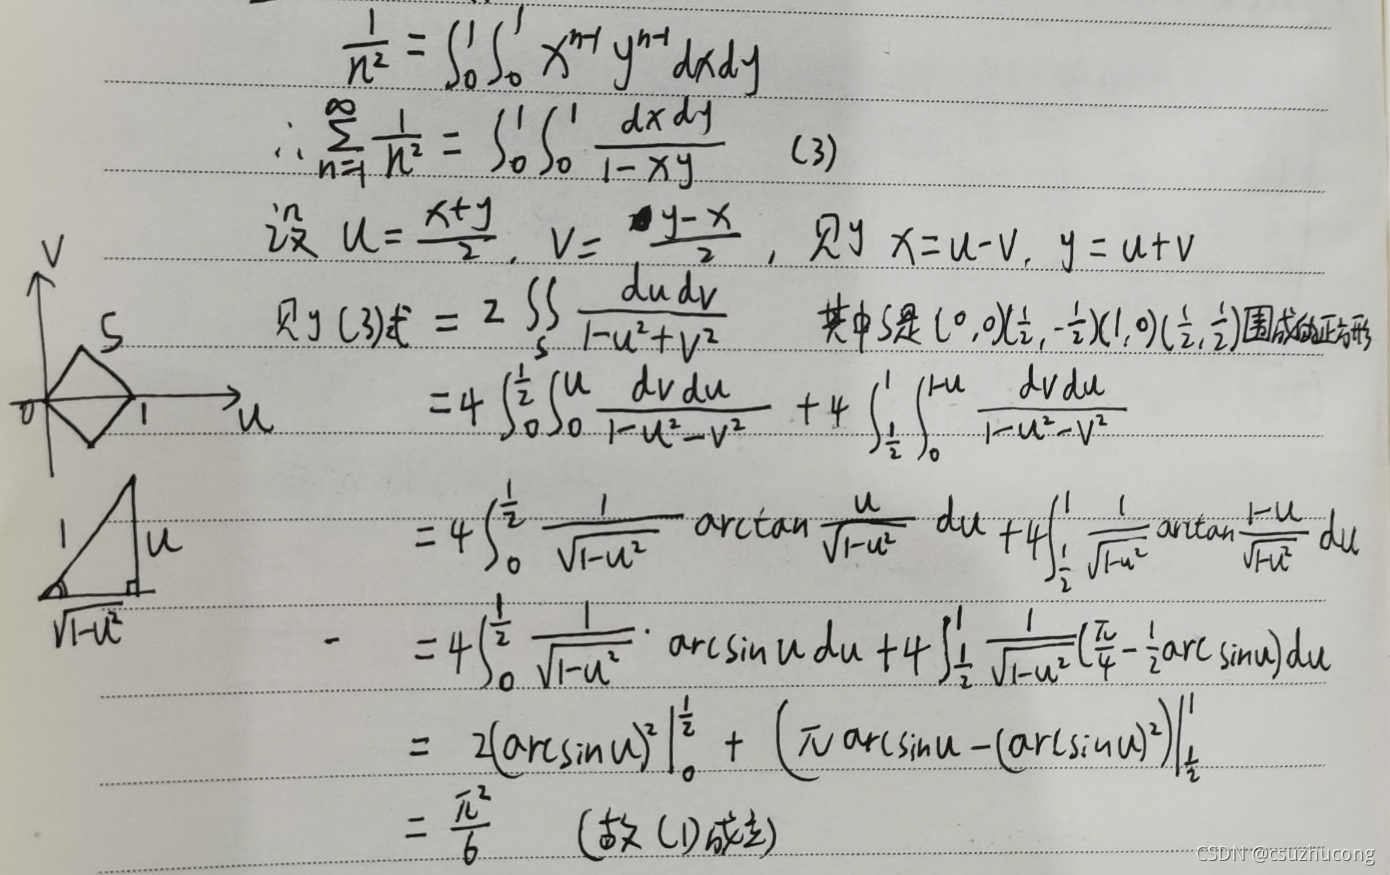 1/n² = ∫₀¹∫₀¹ xⁿ⁻¹ yⁿ⁻¹ dxdy
∴ ∑_{n=1}^{∞} 1/n² = ∫₀¹∫₀¹ dxdy/(1-xy) (3)
设 u = (x+y)/2, v = (y-x)/2, 则 x=u-v, y=u+v
则(3)式 = 2∬_S dudv/(1-u²+v²) 其中S是(0,0)(1/2,-1/2)(1,0)(1/2,1/2)围成的正方形
= 4∫₀^{1/2}∫₀^{u} dvdu/(1-u²-v²) + 4∫_{1/2}^{1}∫₀^{1-u} dvdu/(1-u²-v²)
= 4∫₀^{1/2} 1/√(1-u²) arctan u/√(1-u²) du + 4∫_{1/2}^{1} 1/√(1-u²) arctan (1-u)/√(1-u²) du
= 4∫₀^{1/2} 1/√(1-u²) · arcsinu du + 4∫_{1/2}^{1} 1/√(1-u²) (π/4 - 1/2 arcsinu)du
= 2(arcsinu)²|₀^{1/2} + (π arcsinu - (arcsinu)²)|_{1/2}^{1}
= π²/6 (故(1)成立)
V
S
0
1
u
1
u
√(1-u²)
CSDN @csuzhucong